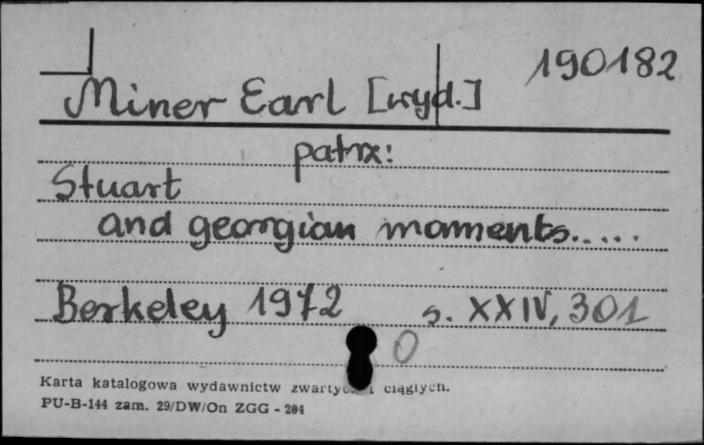 190182
Miner Earl [wyd.]
patrz:
Stuart
and georgian moments.....
Berkeley 1972 s. XXIV, 301
0
Karta katalogowa wydawnictw zwartych i ciągłych.
PU-B-144 zam. 29/DW/On ZGG - 204